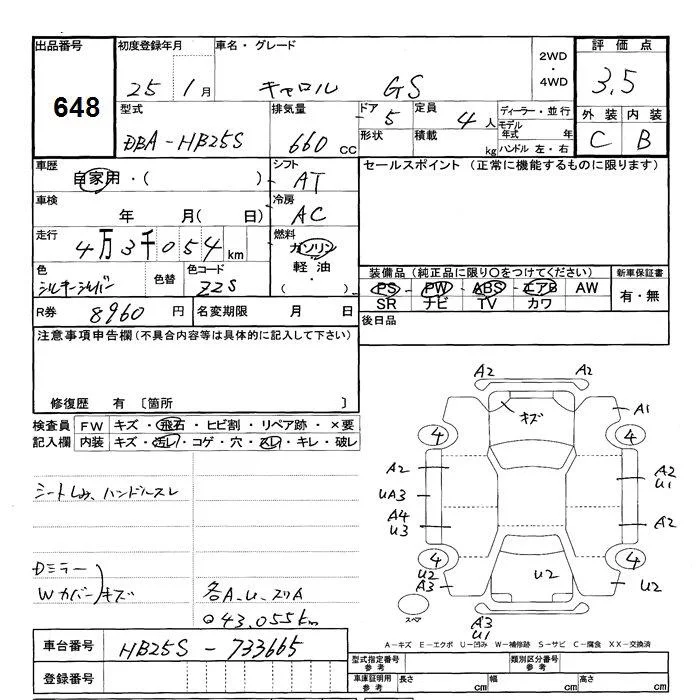 出品番号 初度登録年月 車名・グレード 2WD・4WD 評価点
648 25 1月 キャロル GS 3.5
型式 排気量 ドア 5 定員 4人 ディーラー・並行 外装 内装
DBA-HB25S 660 CC 形状 積載 kg モデル年式 年 C B
ハンドル 左・右
車歴 自家用・( ) シフト AT セールスポイント (正常に機能するものに限ります)
車検 年 月( 日) 冷房 AC
走行 4万3千054km 燃料 ガソリン・軽油・( )
色 シルキーシルバー 色替 色コード ZZS
装備品 (純正品に限り○をつけてください) 新車保証書
PS PW ABS エアB AW 有・無
SR ナビ TV カワ
R券 8960 円 名変期限 月 日 後日品
注意事項申告欄 (不具合内容等は具体的に記入して下さい)
修復歴 有 〔箇所 〕
検査員 FW キズ・飛石・ヒビ割・リペア跡・×要
記入欄 内装 キズ・汚レ・コゲ・穴・スレ・キレ・破レ
シートしみ、ハンドルスレ
Dミラー
Wカバー)キズ
各A.U.スリA
43,055km
A2 A2
キズ A1
4 4
A2 A2
U1
UA3
A4 A2
U3
4 4
U2 U2 U2
A3
スペア A3
U1
A-キズ E-エクボ U-凹み W-補修跡 S-サビ C-腐食 XX-交換済
車台番号 HB25S-733665
登録番号
型式指定番号 参考 類別区分番号 参考
車庫証明用 参考 長さ cm 幅 cm 高さ cm